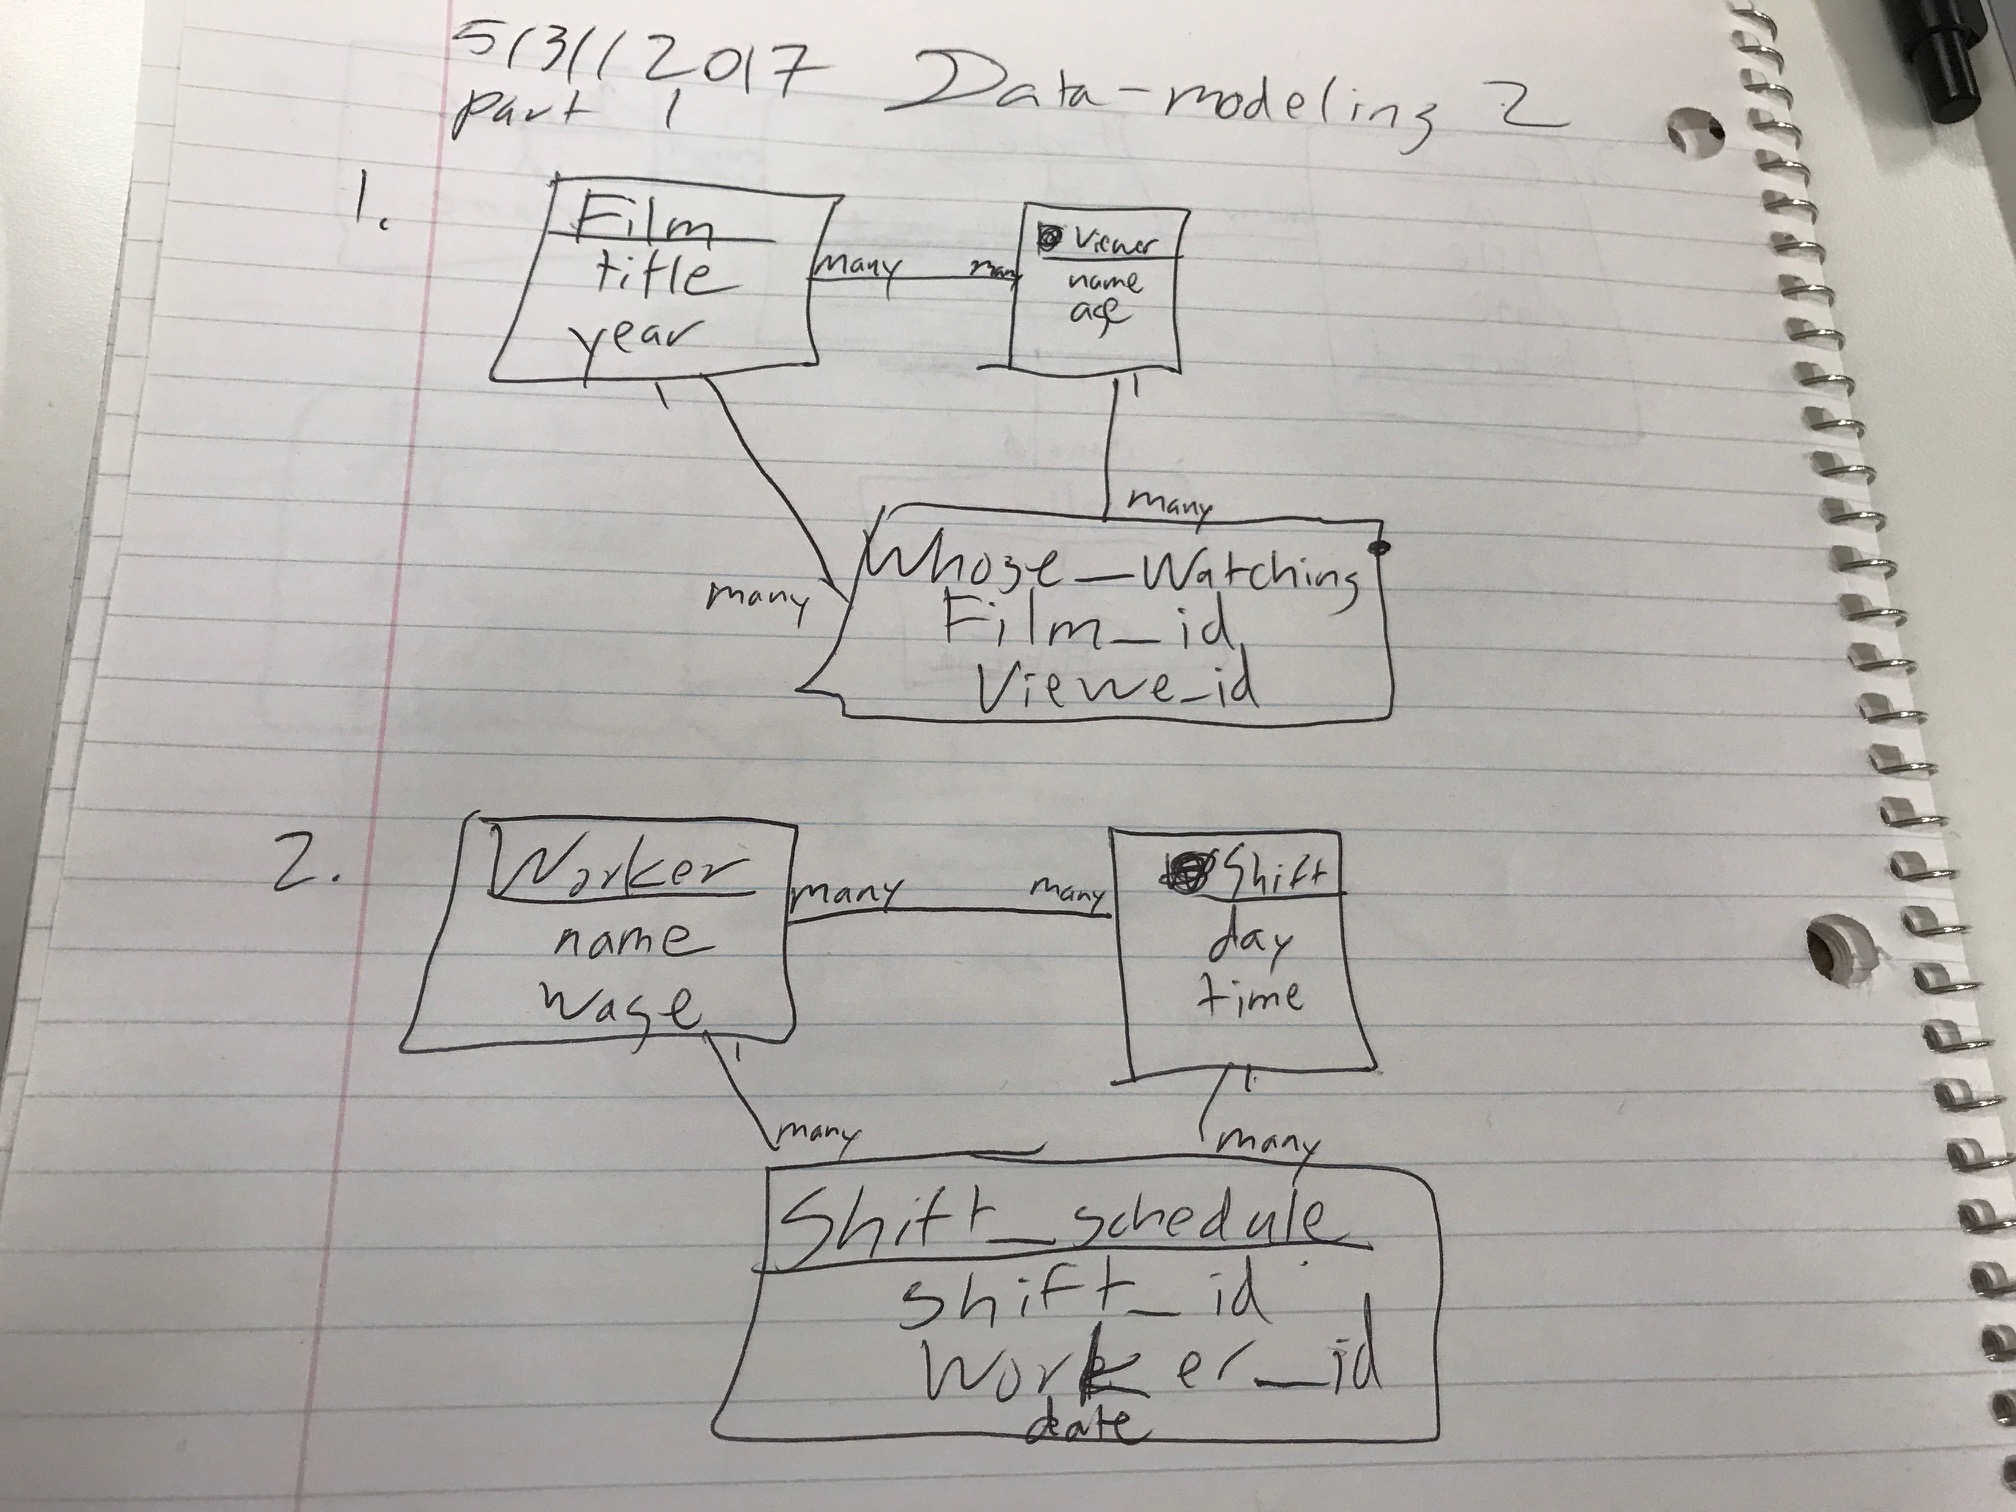 5/31/2017 Data-modeling 2
part 1
1.
Film
title
year
many
many
Viewer
name
age
1
1
many
many
Whose_Watching
Film_id
Viewe_id
2.
Worker
name
wage
many
many
Shift
day
time
1
1
many
many
Shift_schedule
shift_id
Worker_id
date